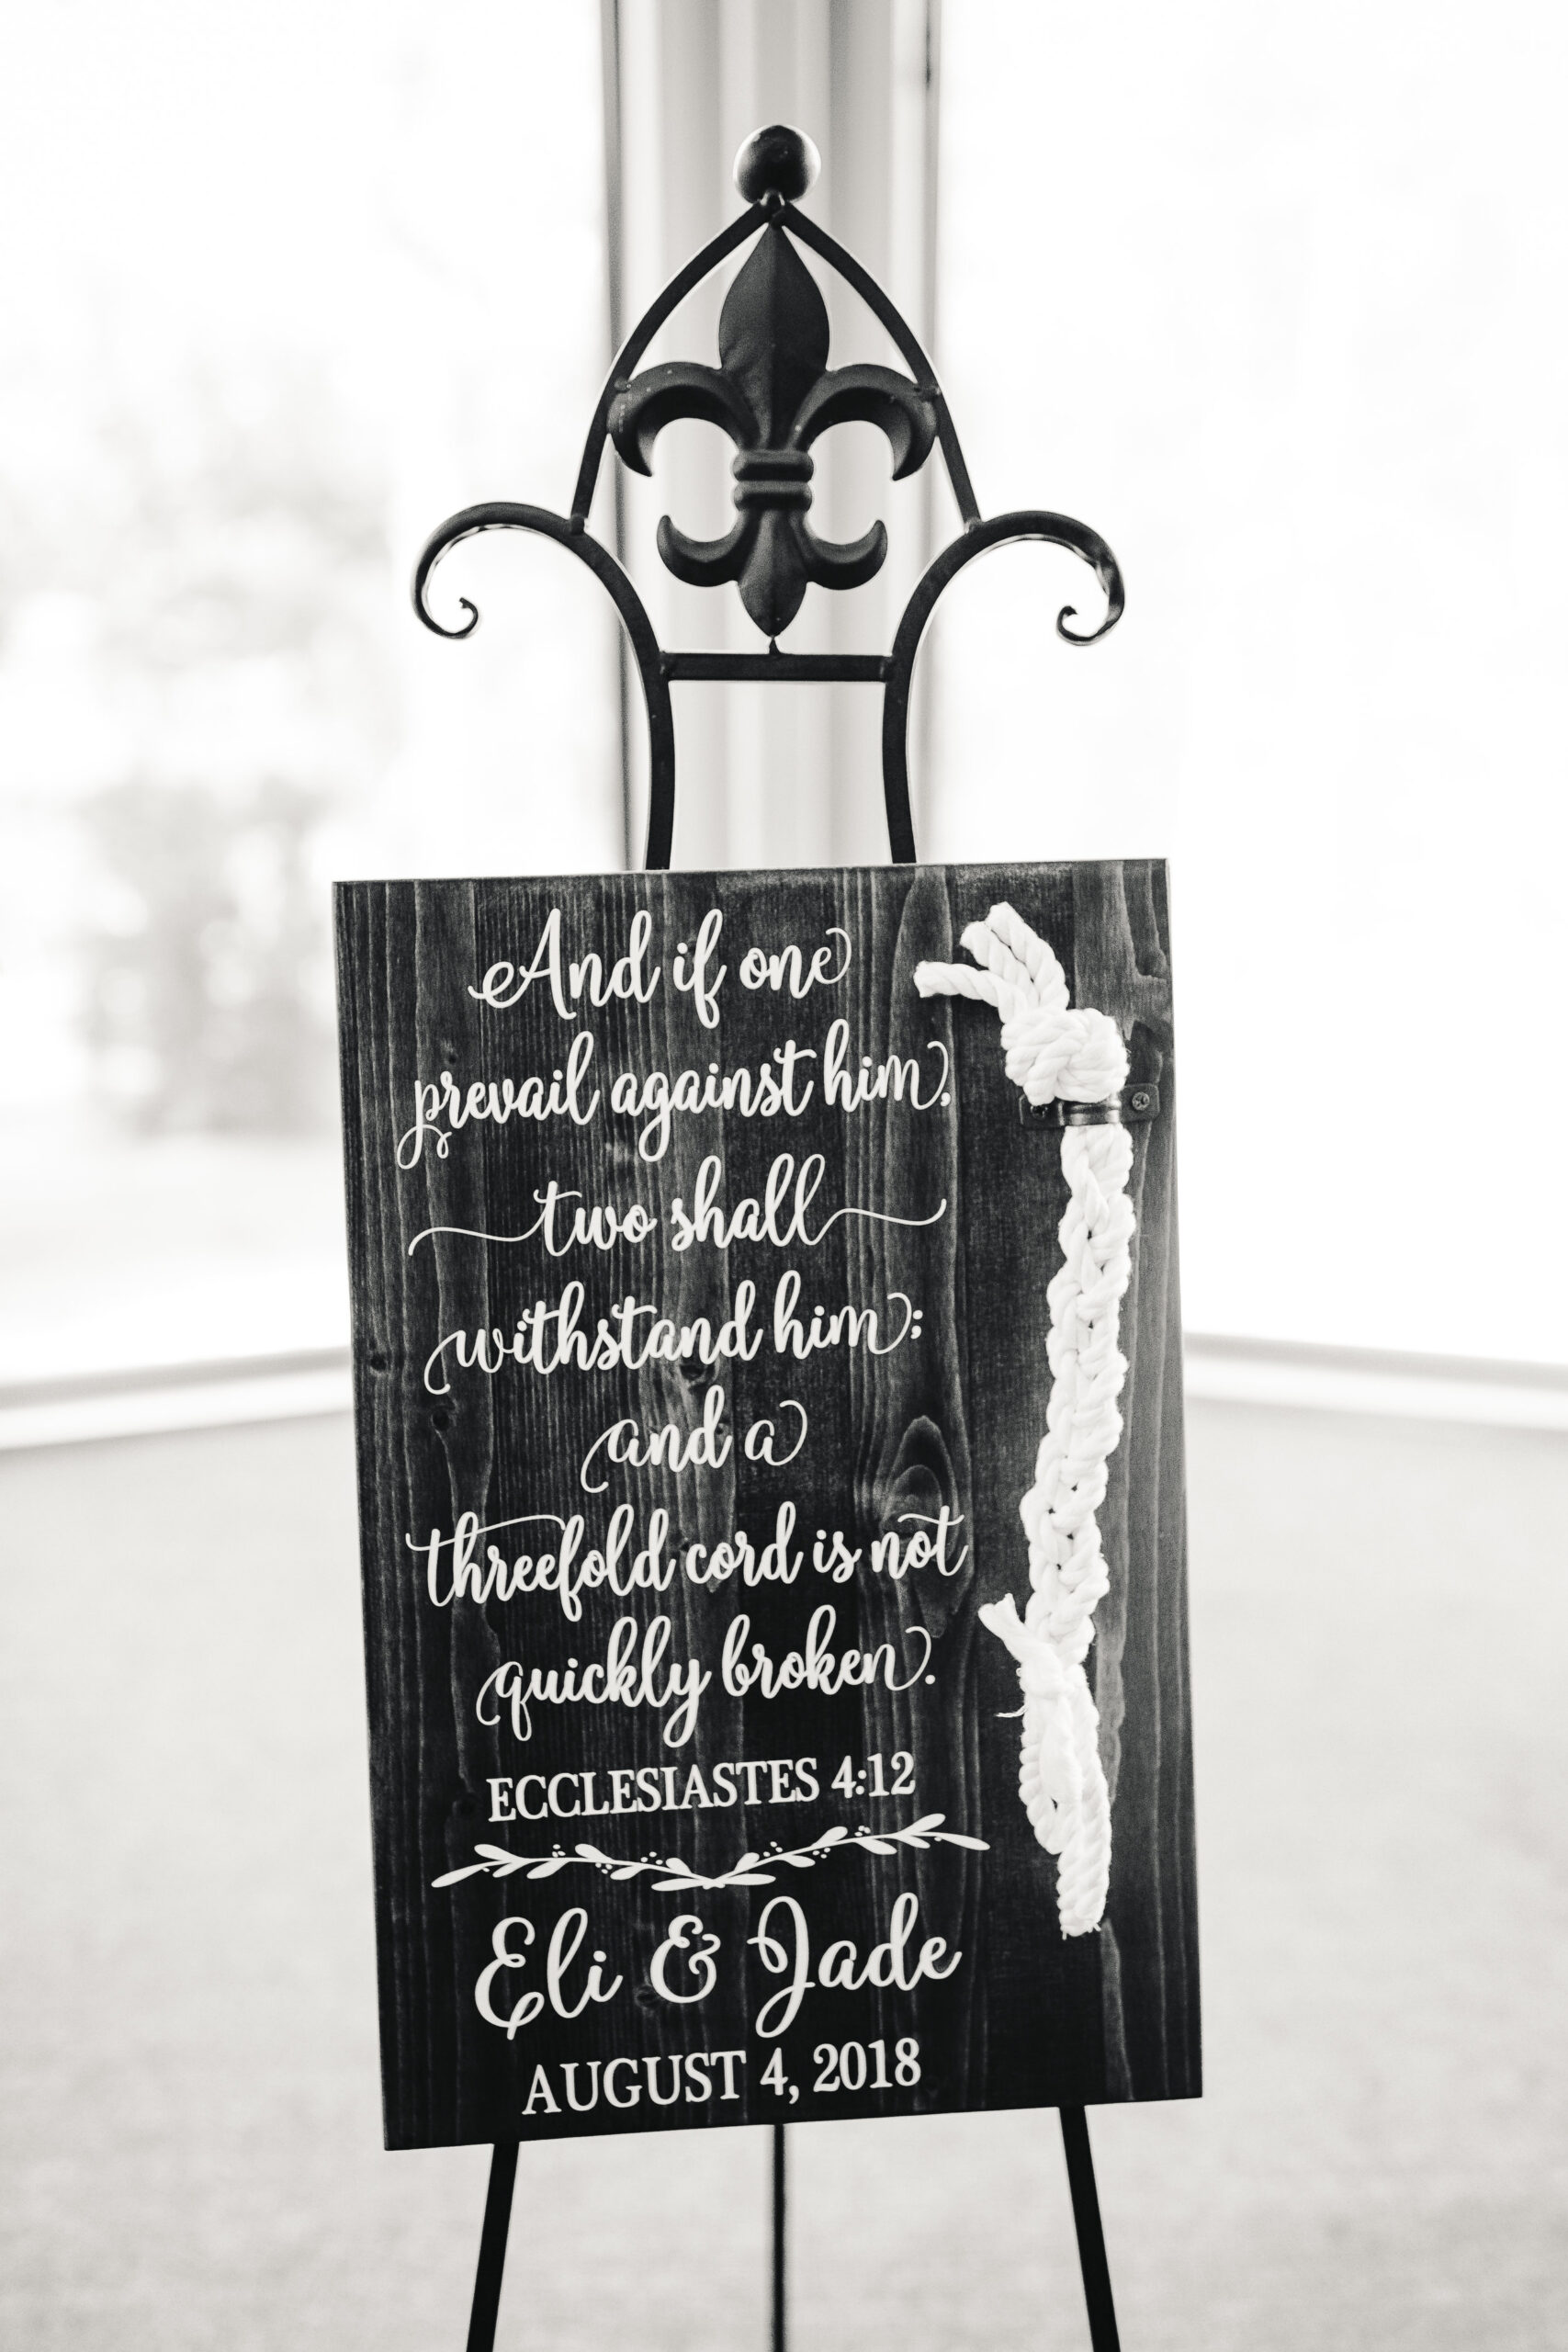 And if one
prevail against him,
two shall
withstand him;
and a
threefold cord is not
quickly broken.
ECCLESIASTES 4:12
Eli & Jade
AUGUST 4, 2018